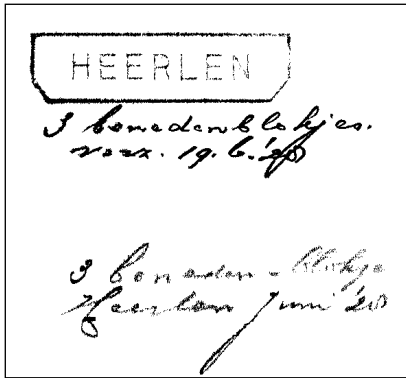 HEERLEN
3 benedenblokjes.
verz. 19.6.'28
3 beneden-blokje
Heerlen Juni '28